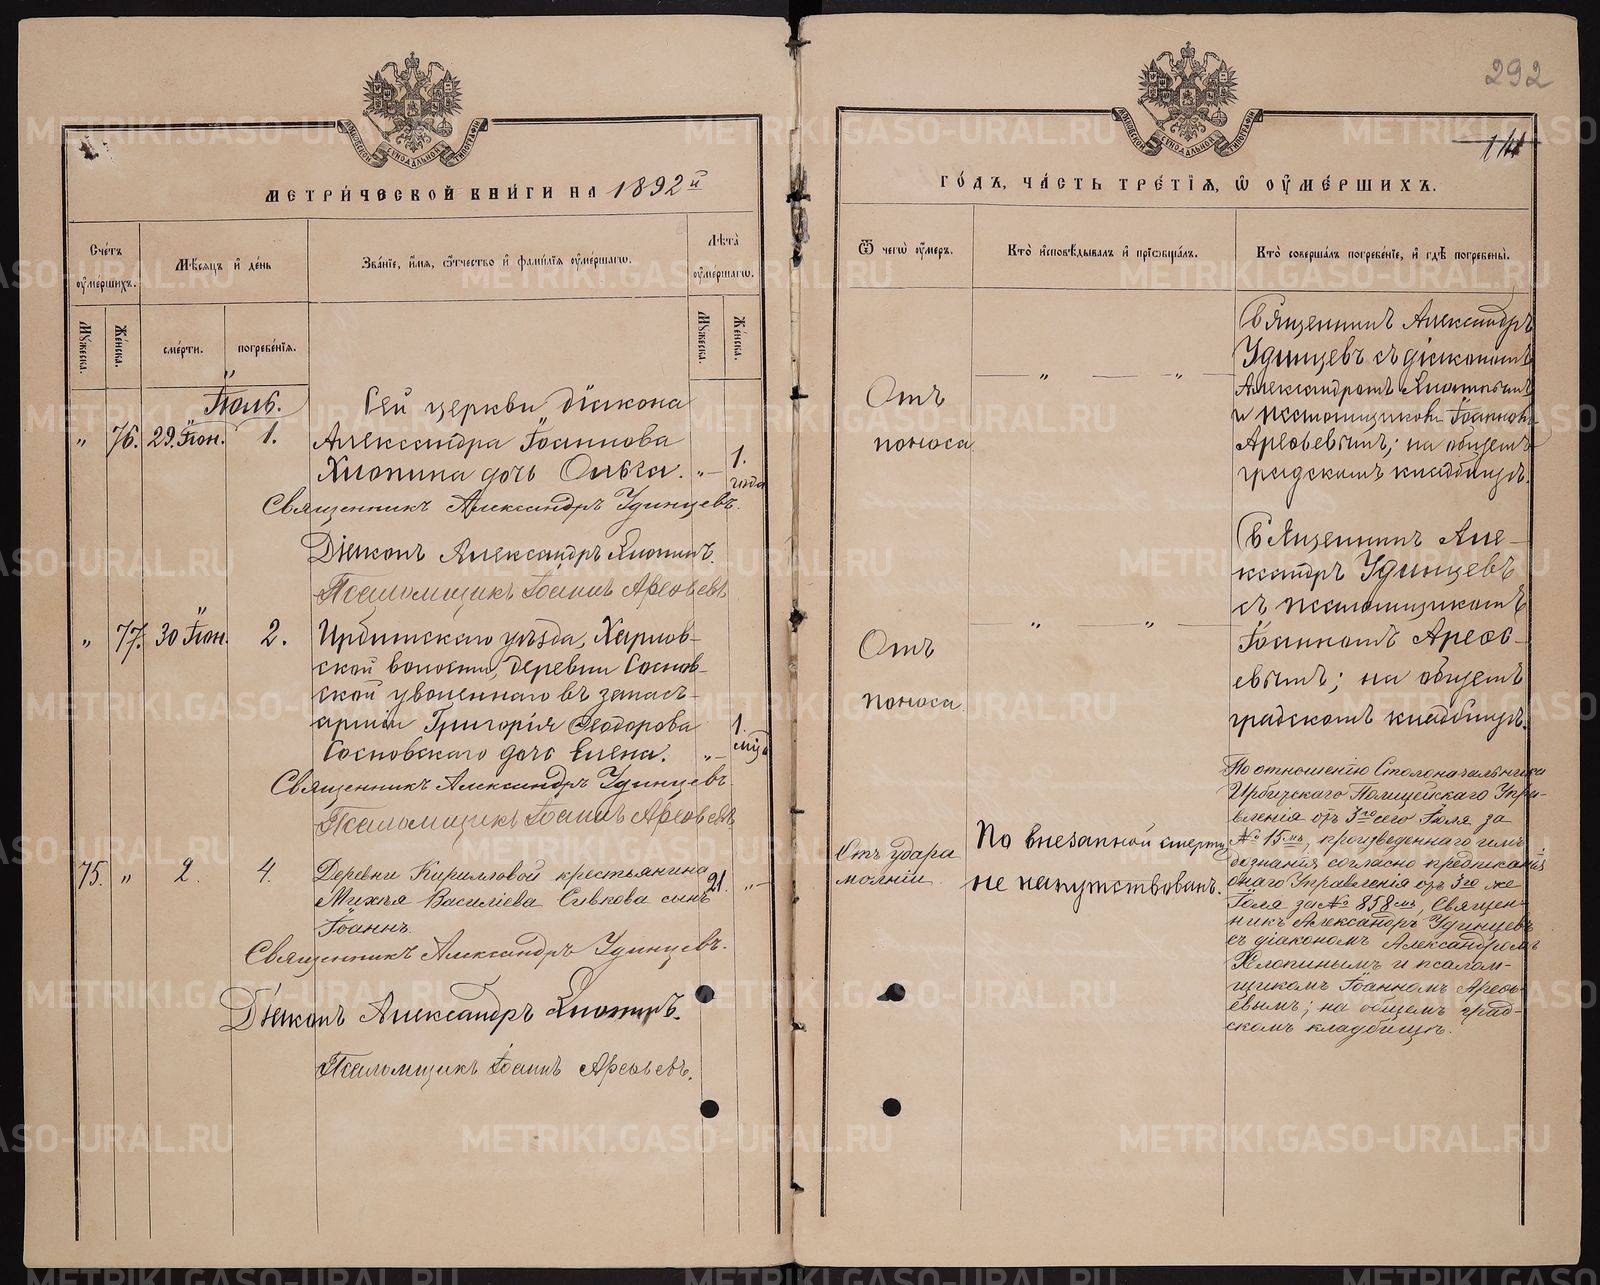 292
141
МЕТРИ́ЧЕСКОЙ КНИ́ГИ НА 1892й
ГО́ДЪ, ЧА́СТЬ ТРЕ́ТІЯ, Ѿ ОУ҆МЕ́РШИХЪ.
Сче́тъ оу҆ме́ршихъ.
Мѣ́сяцъ и҆ де́нь
Зва́ніе, и҆́мя, ѻ҆́тчество и҆ фами́лія оу҆ме́ршагѡ.
Лѣ́та оу҆ме́ршагѡ.
Му́жеска.
Же́нска.
сме́рти.
погребе́нія.
Му́жеска.
Же́нска.
Ѿ чегѡ̀ оу҆́меръ.
Кто̀ и҆сповѣ́дывалъ и҆ прїѡбща́лъ.
Кто̀ соверша́лъ погребе́ніе, и҆ гдѣ̀ погребены̀.
Іюль.
„ 76. 29 Іюн. 1.
Сей церкви діакона
Александра Іоаннова
Хлопина дочь Ольга. „ 1. года
Священникъ Александръ Удинцевъ.
Діаконъ Александръ Хлопинъ.
Псаломщикъ Іоаннъ Арефьевъ
Отъ
поноса
„ „
Священникъ Александръ
Удинцевъ съ діакономъ
Александромъ Хлопинымъ
и псаломщикомъ Іоанномъ
Арефьевымъ; на общемъ
градскомъ кладбищѣ.
„ 77. 30 Іюн. 2.
Ирбитскаго уѣзда, Харлов-
ской волости, деревни Соснов-
ской уволеннаго въ запасъ
арміи Григорія Ѳеодорова
Сосновскаго дочь Елена. „ 1. мѣс.
Священникъ Александръ Удинцевъ.
Псаломщикъ Іоаннъ Арефьевъ
Отъ
поноса
„ „
Священникъ Але-
ксандръ Удинцевъ
съ псаломщикомъ
Іоанномъ Арефь-
евымъ; на общемъ
градскомъ кладбищѣ.
75. „ 2. 4.
Деревни Кирилловой крестьянина
Михея Василіева Сивкова сынъ 21. „
Іоаннъ.
Священникъ Александръ Удинцевъ.
Діаконъ Александръ Хлопинъ.
Псаломщикъ Іоаннъ Арефьевъ.
Отъ удара
молніи.
По внезапной смерти
не напутствованъ.
По отношенію Столоначальника
Ирбитскаго Полицейскаго Упра-
вленія отъ 3го сего Іюля за
№ 15мъ, произведеннаго имъ
дознанія согласно предписанія
онаго Управленія отъ 3го же
Іюля за № 858мъ, Священ-
никъ Александръ Удинцевъ
съ діакономъ Александромъ
Хлопинымъ и псалом-
щикомъ Іоанномъ Арефь-
евымъ; на общемъ град-
скомъ кладбищѣ.
METRIKI.GASO-URAL.RU